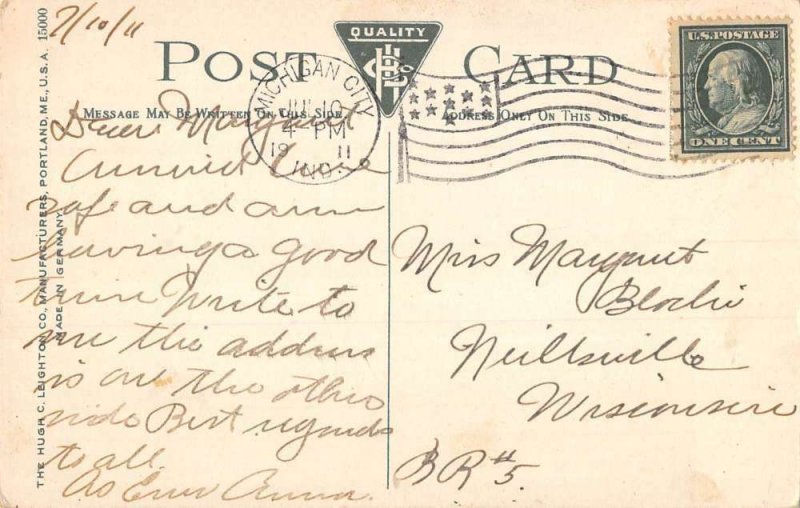 7/10/11
POST CARD
QUALITY
MESSAGE MAY BE WRITTEN ON THIS SIDE.
ADDRESS ONLY ON THIS SIDE
U.S. POSTAGE
ONE CENT
MICHIGAN CITY
JUL 10
4 - PM
19 11
IND.
Dear Margaret
Arrived here
safe and am
having a good
time Write to
me the address
is on the other
side Best regards
to all.
As Ever Anna.
Miss Margaret
Neillsville
Wisconsin
R R # 5.
THE HUGH C. LEIGHTON CO., MANUFACTURERS, PORTLAND, ME., U.S.A. 15000
MADE IN GERMANY